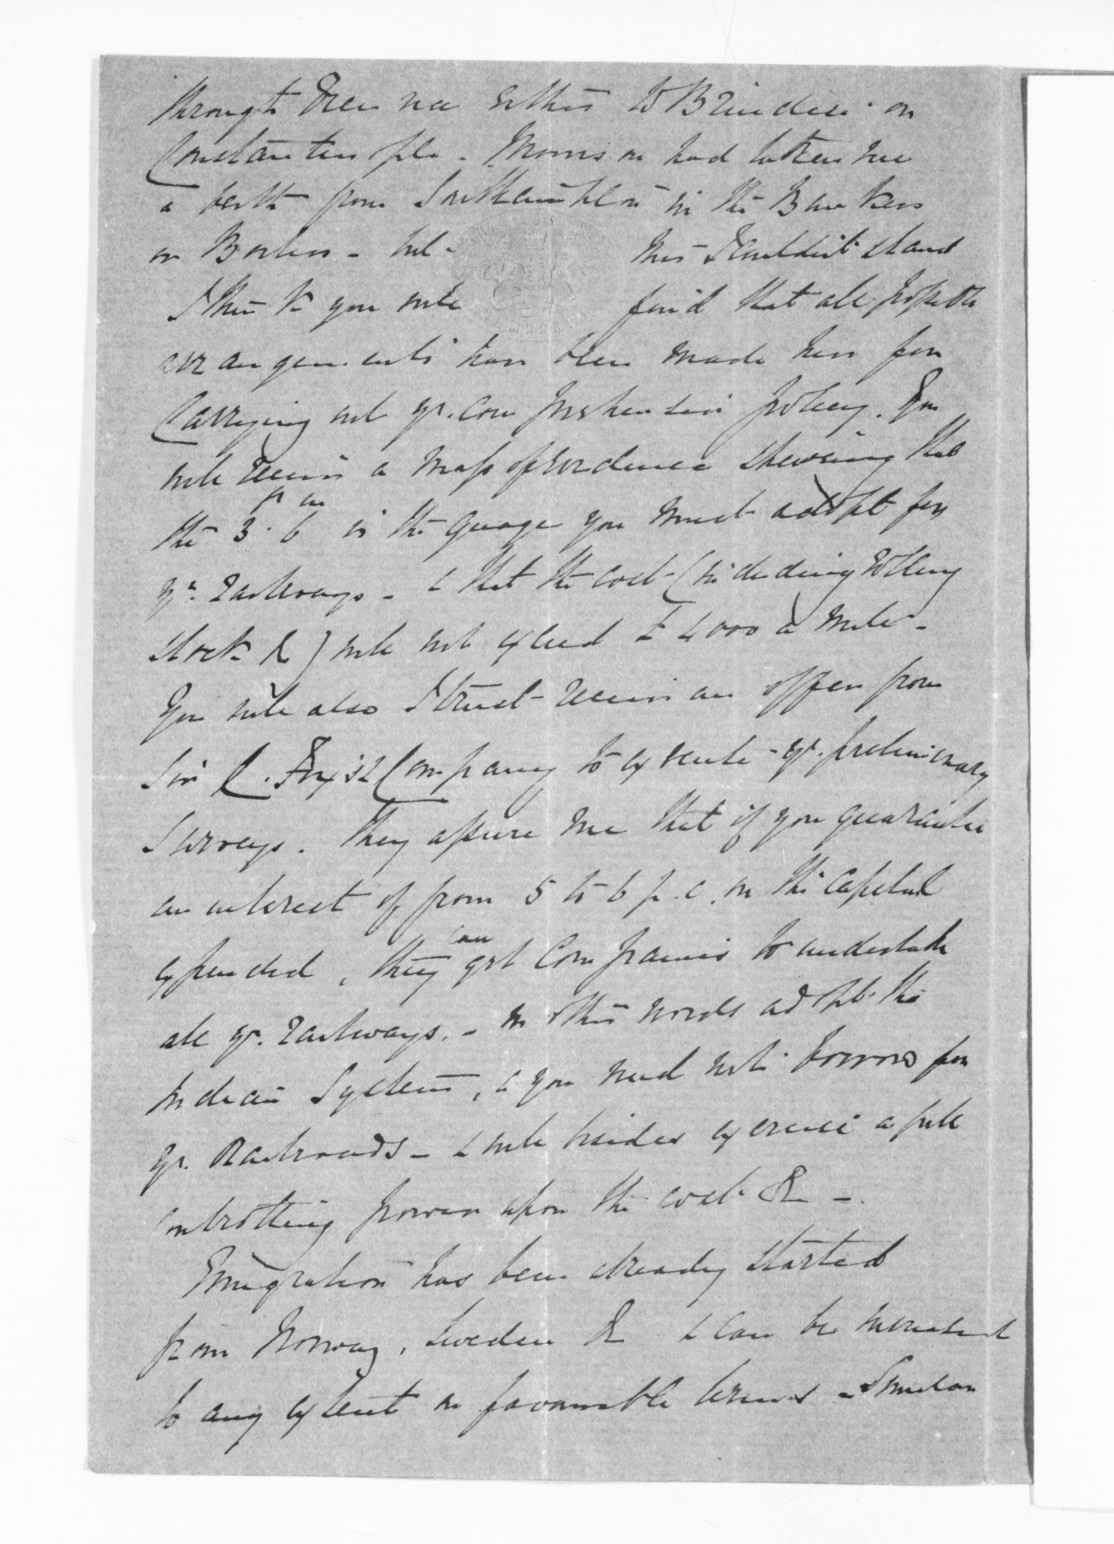 through Vienna either to Brindisi or
Constantinople - Morrison had taken me
a berth from Southampton in the Bankers
or Boxlers - but - this I couldn't stand
I think you will find that all proper
arrangements have been made here for
Carrying out yr. comprehensive policy. You
will receive a mass of evidence shewing that
the 3 ft 6 in is the guage you must adopt for
yr. railways - & that the cost (including rolling
stock &c) will not exceed £4000 a mile -
You will also I trust receive an offer from
Sir C. Fox & Company to execute yr. preliminary
surveys. They assure me that if you guarantee
an interest of from 5 to 6 p.c. on the capital
expended, they can get Companies to undertake
all yr. railways. - In other words adopt the
Indian System, & you need not borrow for
yr. Railroads - & will besides exercise a full
controlling power upon the cost &c -
Emigration has been already started
from Norway, Sweden &c & can be increased
to any extent on favourable terms -